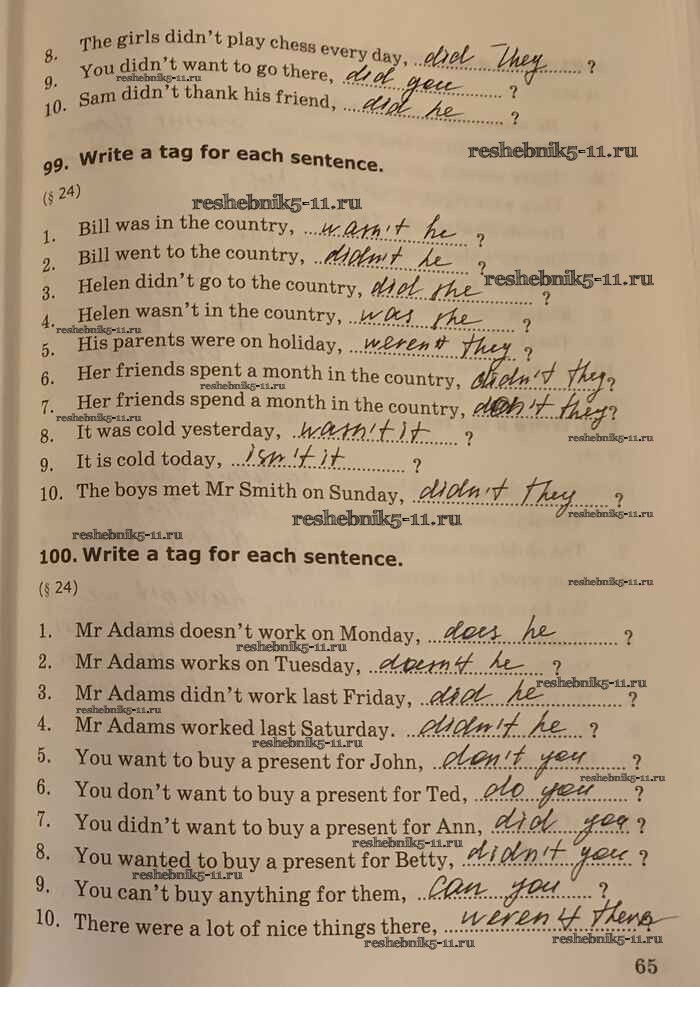 8. The girls didn't play chess every day, did they ?
9. You didn't want to go there, did you ?
reshebnik5-11.ru
10. Sam didn't thank his friend, did he ?
99. Write a tag for each sentence.
reshebnik5-11.ru
(§ 24)
reshebnik5-11.ru
1. Bill was in the country, wasn't he ?
2. Bill went to the country, didn't he ?
reshebnik5-11.ru
3. Helen didn't go to the country, did she ?
4. Helen wasn't in the country, was she ?
reshebnik5-11.ru
5. His parents were on holiday, weren't they ?
6. Her friends spent a month in the country, didn't they ?
reshebnik5-11.ru
7. Her friends spend a month in the country, don't they ?
reshebnik5-11.ru
8. It was cold yesterday, wasn't it ?
reshebnik5-11.ru
9. It is cold today, isn't it ?
10. The boys met Mr Smith on Sunday, didn't they ?
reshebnik5-11.ru
reshebnik5-11.ru
reshebnik5-11.ru
100. Write a tag for each sentence.
reshebnik5-11.ru
(§ 24)
1. Mr Adams doesn't work on Monday, does he ?
reshebnik5-11.ru
2. Mr Adams works on Tuesday, doesn't he ?
reshebnik5-11.ru
3. Mr Adams didn't work last Friday, did he ?
reshebnik5-11.ru
4. Mr Adams worked last Saturday. didn't he ?
reshebnik5-11.ru
5. You want to buy a present for John, don't you ?
reshebnik5-11.ru
6. You don't want to buy a present for Ted, do you ?
7. You didn't want to buy a present for Ann, did you ?
reshebnik5-11.ru
8. You wanted to buy a present for Betty, didn't you ?
reshebnik5-11.ru
9. You can't buy anything for them, can you ?
10. There were a lot of nice things there, weren't there ?
reshebnik5-11.ru
reshebnik5-11.ru
65